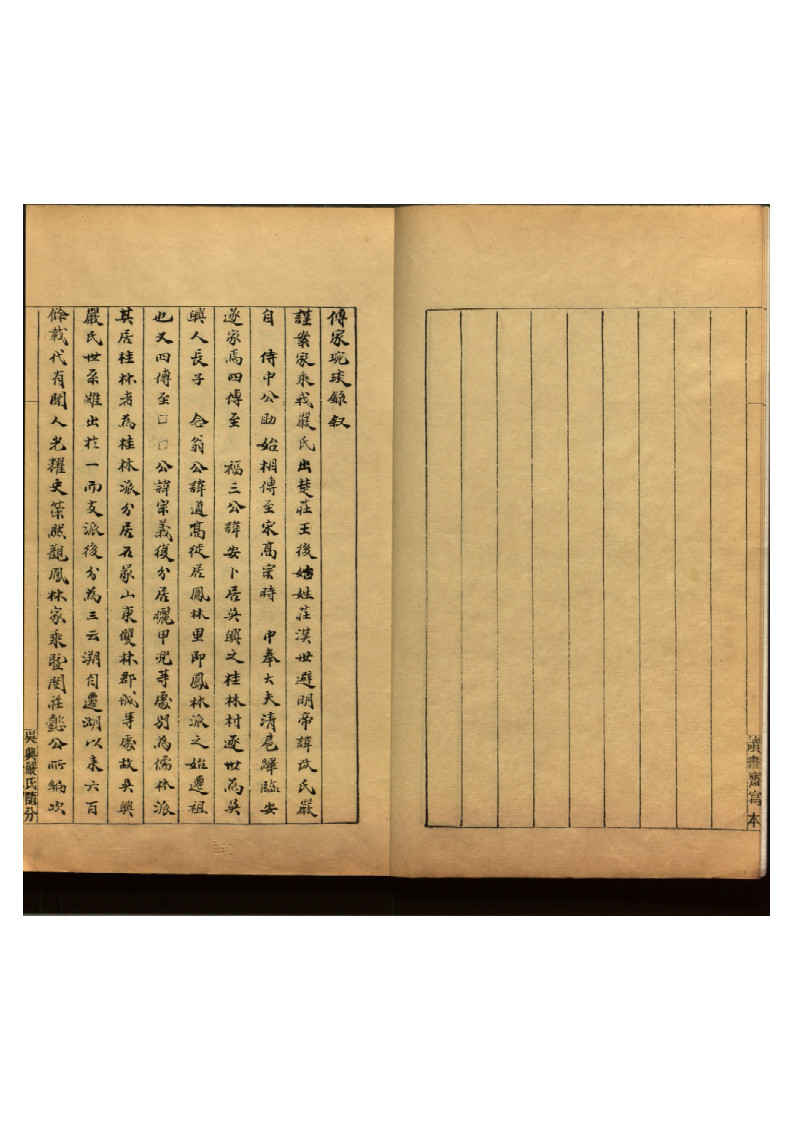 讀書齋寫本
傳家琬琰錄叙
謹案家乘我嚴氏出楚莊王後始姓莊漢世避明帝諱改氏嚴
自　侍中公助始相傳至宋高宗時　中奉大夫清扈蹕臨安
遂家焉四傳至　福三公諱安卜居吳興之桂林村遂世為吳
興人長子　公諱道髙徙居鳳林里即鳳林派之始遷祖
也又四傳至口口公諱宗義後分居曬甲兜等處别為儒林派
其居桂林者為桂林派分居石冢山東雙林郡城等處故吳興
嚴氏世系雖出扵一而支派後分為三云溯自遷湖以来六百
餘載代有聞人光耀史策然觀鳳林家乘暨閏莊懿公所編次
吳興嚴氏隨分